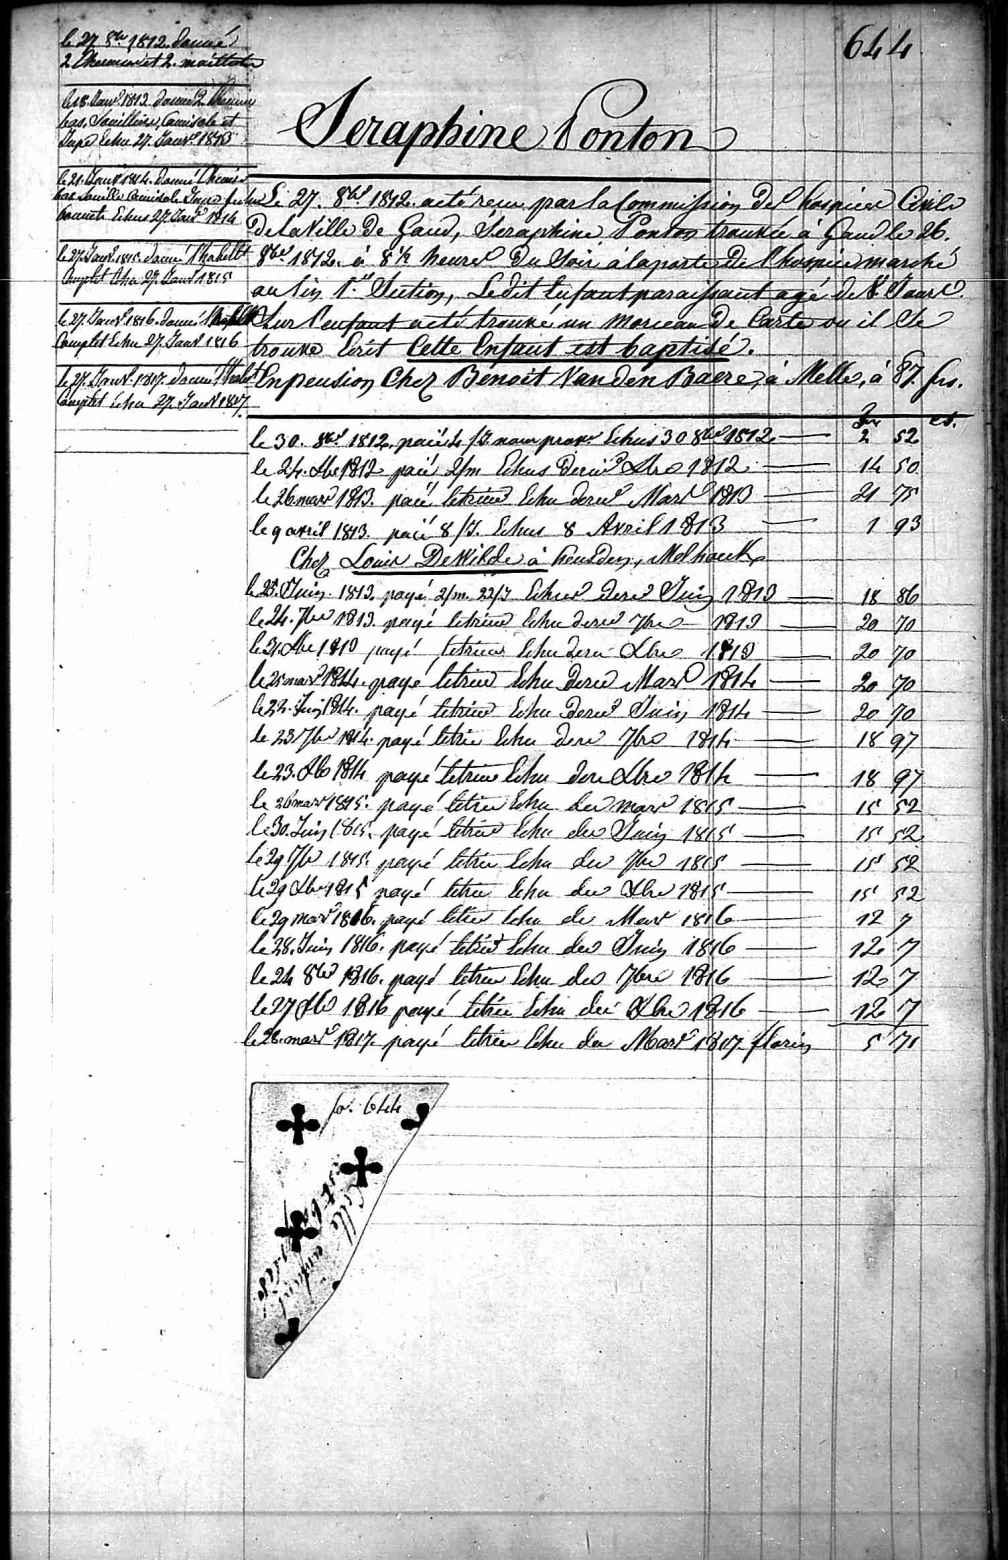 644
le 27 8bre 1812 donné
2 Chemises et 2 maillots
le 18 Janvr 1813 donné 2 Chemises
bas, Souilliere, Camisole et
Jupe Echu 27 Janvr 1813
le 21 Janvr 1814 donné Chemise
bas Souille Camisole Jupe fichu
bonnet Echus 27 Janvr 1814
le 27 Janvr 1815 donné l'habillt
Complet Echu 27 Janvr 1815
le 27 Janvr 1816 donné l'habillt
Complet Echu 27 Janvr 1816
le 27 Janvr 1817 donné l'habt
Complet échu 27 Janvr 1817
Seraphine Ponton
Le 27. 8bre 1812. a été recu par la Commission de l'hospice Civile
De la Ville de Gand, Séraphine Ponton trouvée à Gand le 26.
8bre 1812. à 8½ heures Du Soir à la porte De l'hospice marché
au lin 1re Section, Ledit Enfant paraissant agé de 8 Jours.
Sur l'enfant a été trouvé un morceau De Carte ou il Se
trouve Ecrit Cette Enfant est baptisé.
En pension Chez Benoit Van den Baere, à Melle, à 87 frs.
frs ct.
le 30. 8bre 1812. paié 4 /J. Echus 30 8bre 1812 — 2 52
le 24. Xbre 1812 paié 2/m Echus dernr Xbre 1812 — 14 50
le 26 mars 1813. paié letrim Echu dernr Mars 1813 — 21 75
le 9 avril 1813. paié 8 /J. Echus 8 Avril 1813 — 1 93
Chez Louis DeWilde à heusden, Melhouck
le 25. Juin 1813 payé 2/m. 22/J Echus dernr Juin 1813 — 18 86
le 24. 7bre 1813. payé letrim Echu dernr 7bre 1813 — 20 70
le 31 Xbre 1813 payé letrim Echu dernr Xbre 1813 — 20 70
le 25 mars 1814. payé letrim Echu dernr Mars 1814 — 20 70
le 24. Juin 1814. payé letrim Echu dernr Juin 1814 — 20 70
le 23 7bre 1814. payé letrim Echu dernr 7bre 1814 — 18 97
le 23. Xbre 1814 payé letrim Echu dernr Xbre 1814 — 18 97
le 26 mars 1815. payé letrim Echu der mars 1815 — 15 52
le 30. Juin 1815. payé letrim Echu der Juin 1815 — 15 52
le 29 7bre 1815. payé letrim Echu der 7bre 1815 — 15 52
le 29 Xbre 1815 payé letrim Echu der Xbre 1815 — 15 52
le 29 mars 1816. payé letrim Echu der Mars 1816 — 12 7
le 28. Juin 1816. payé letrim Echu der Juin 1816 — 12 7
le 24 8bre 1816. payé letrim Echu der 7bre 1816 — 12 7
le 27 Xbre 1816 payé letrim Echu der Xbre 1816 — 12 7
le 28. mars 1817. payé letrim Echu der Mars 1817 florins 5 71
fo. 644
Cette enfant
est baptise.